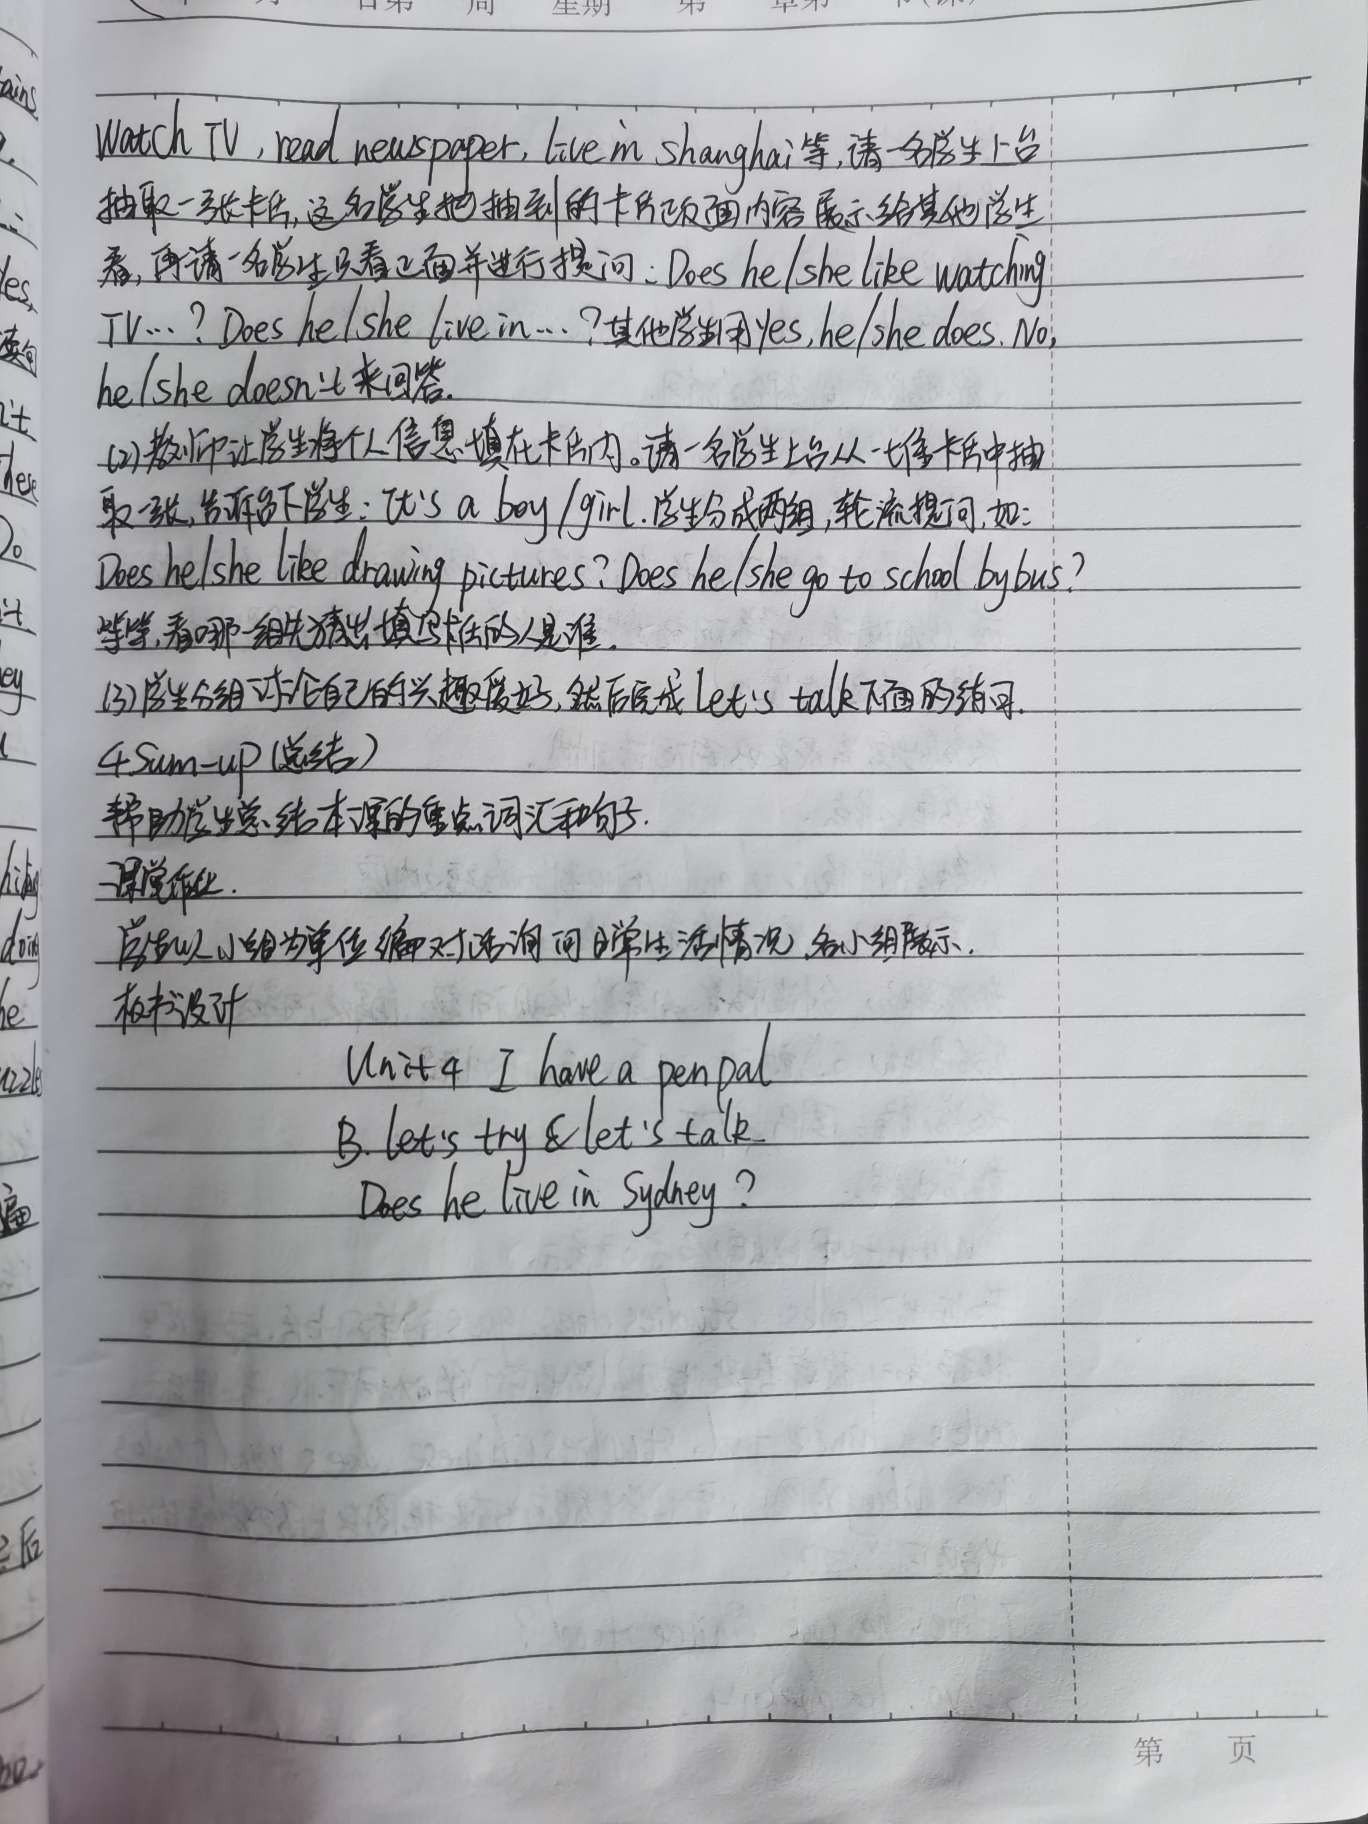 Watch TV, read newspaper, live in shanghai等,请一名学生上台
抽取一张卡片,这名学生把抽到的卡片反面内容展示给其他学生
看,再请一名学生只看正面并进行提问:Does he/she like watching
TV…? Does he/she live in…?其他学生用Yes, he/she does. No,
he/she doesn't来回答.
(2)教师让学生将个人信息填在卡片内。请一名学生上台从一堆卡片中抽
取一张,告诉台下学生:It's a boy/girl.学生分成两组,轮流提问,如:
Does he/she like drawing pictures? Does he/she go to school by bus?
等等,看哪一组先猜出填写卡片的人是谁.
(3)学生分组讨论自己的兴趣爱好,然后完成let's talk下面的练习.
4 Sum-up(总结)
帮助学生总结本课的重点词汇和句子.
课堂作业.
学生以小组为单位编对话询问日常生活情况,各小组展示.
板书设计
Unit 4 I have a pen pal
B. let's try & let's talk
Does he live in Sydney?
第 页